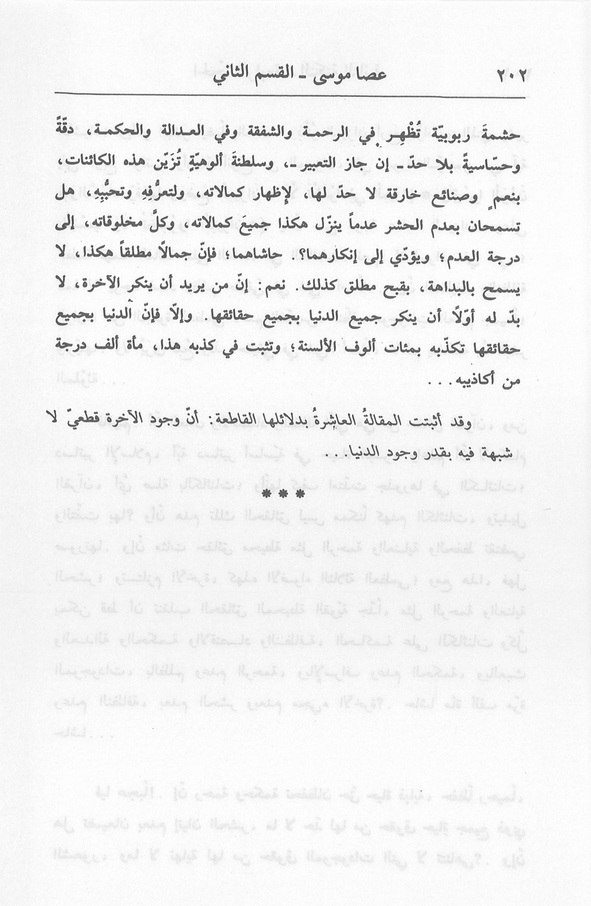 ٢٠٢ عصا موسى ـ القسم الثاني
حشمةَ ربوبيّة تُظْهِر في الرحمة والشفقة وفي العدالة والحكمة، دقّةً
وحسّاسيةً بلا حدّ ـ إن جاز التعبير ـ، وسلطنةَ ألوهيّةٍ تُزَيّن هذه الكائنات،
بنعمٍ وصنائع خارقة لا حدّ لها، لإظهار كمالاته، ولتعرُّفِهِ وتحبُّبِهِ، هل
تسمحان بعدم الحشر عدماً ينزّل هكذا جميعَ كمالاته، وكلَّ مخلوقاته، إلى
درجة العدم؛ ويؤدّي إلى إنكارهما؟. حاشاهما؛ فإنّ جمالًا مطلقاً هكذا، لا
يسمح بالبداهة، بقبح مطلق كذلك. نعم: إنّ من يريد أن ينكر الآخرة، لا
بدّ له أوّلًا أن ينكر جميع الدنيا بجميع حقائقها. وإلّا فإنّ الدنيا بجميع
حقائقها تكذّبه بمئات ألوف الألسنة؛ وتثبت في كذبه هذا، مأة ألف درجة
من أكاذيبه...
وقد أثبتت المقالةُ العاشرةُ بدلائلها القاطعة: أنّ وجود الآخرة قطعيّ لا
شبهة فيه بقدر وجود الدنيا...
* * *